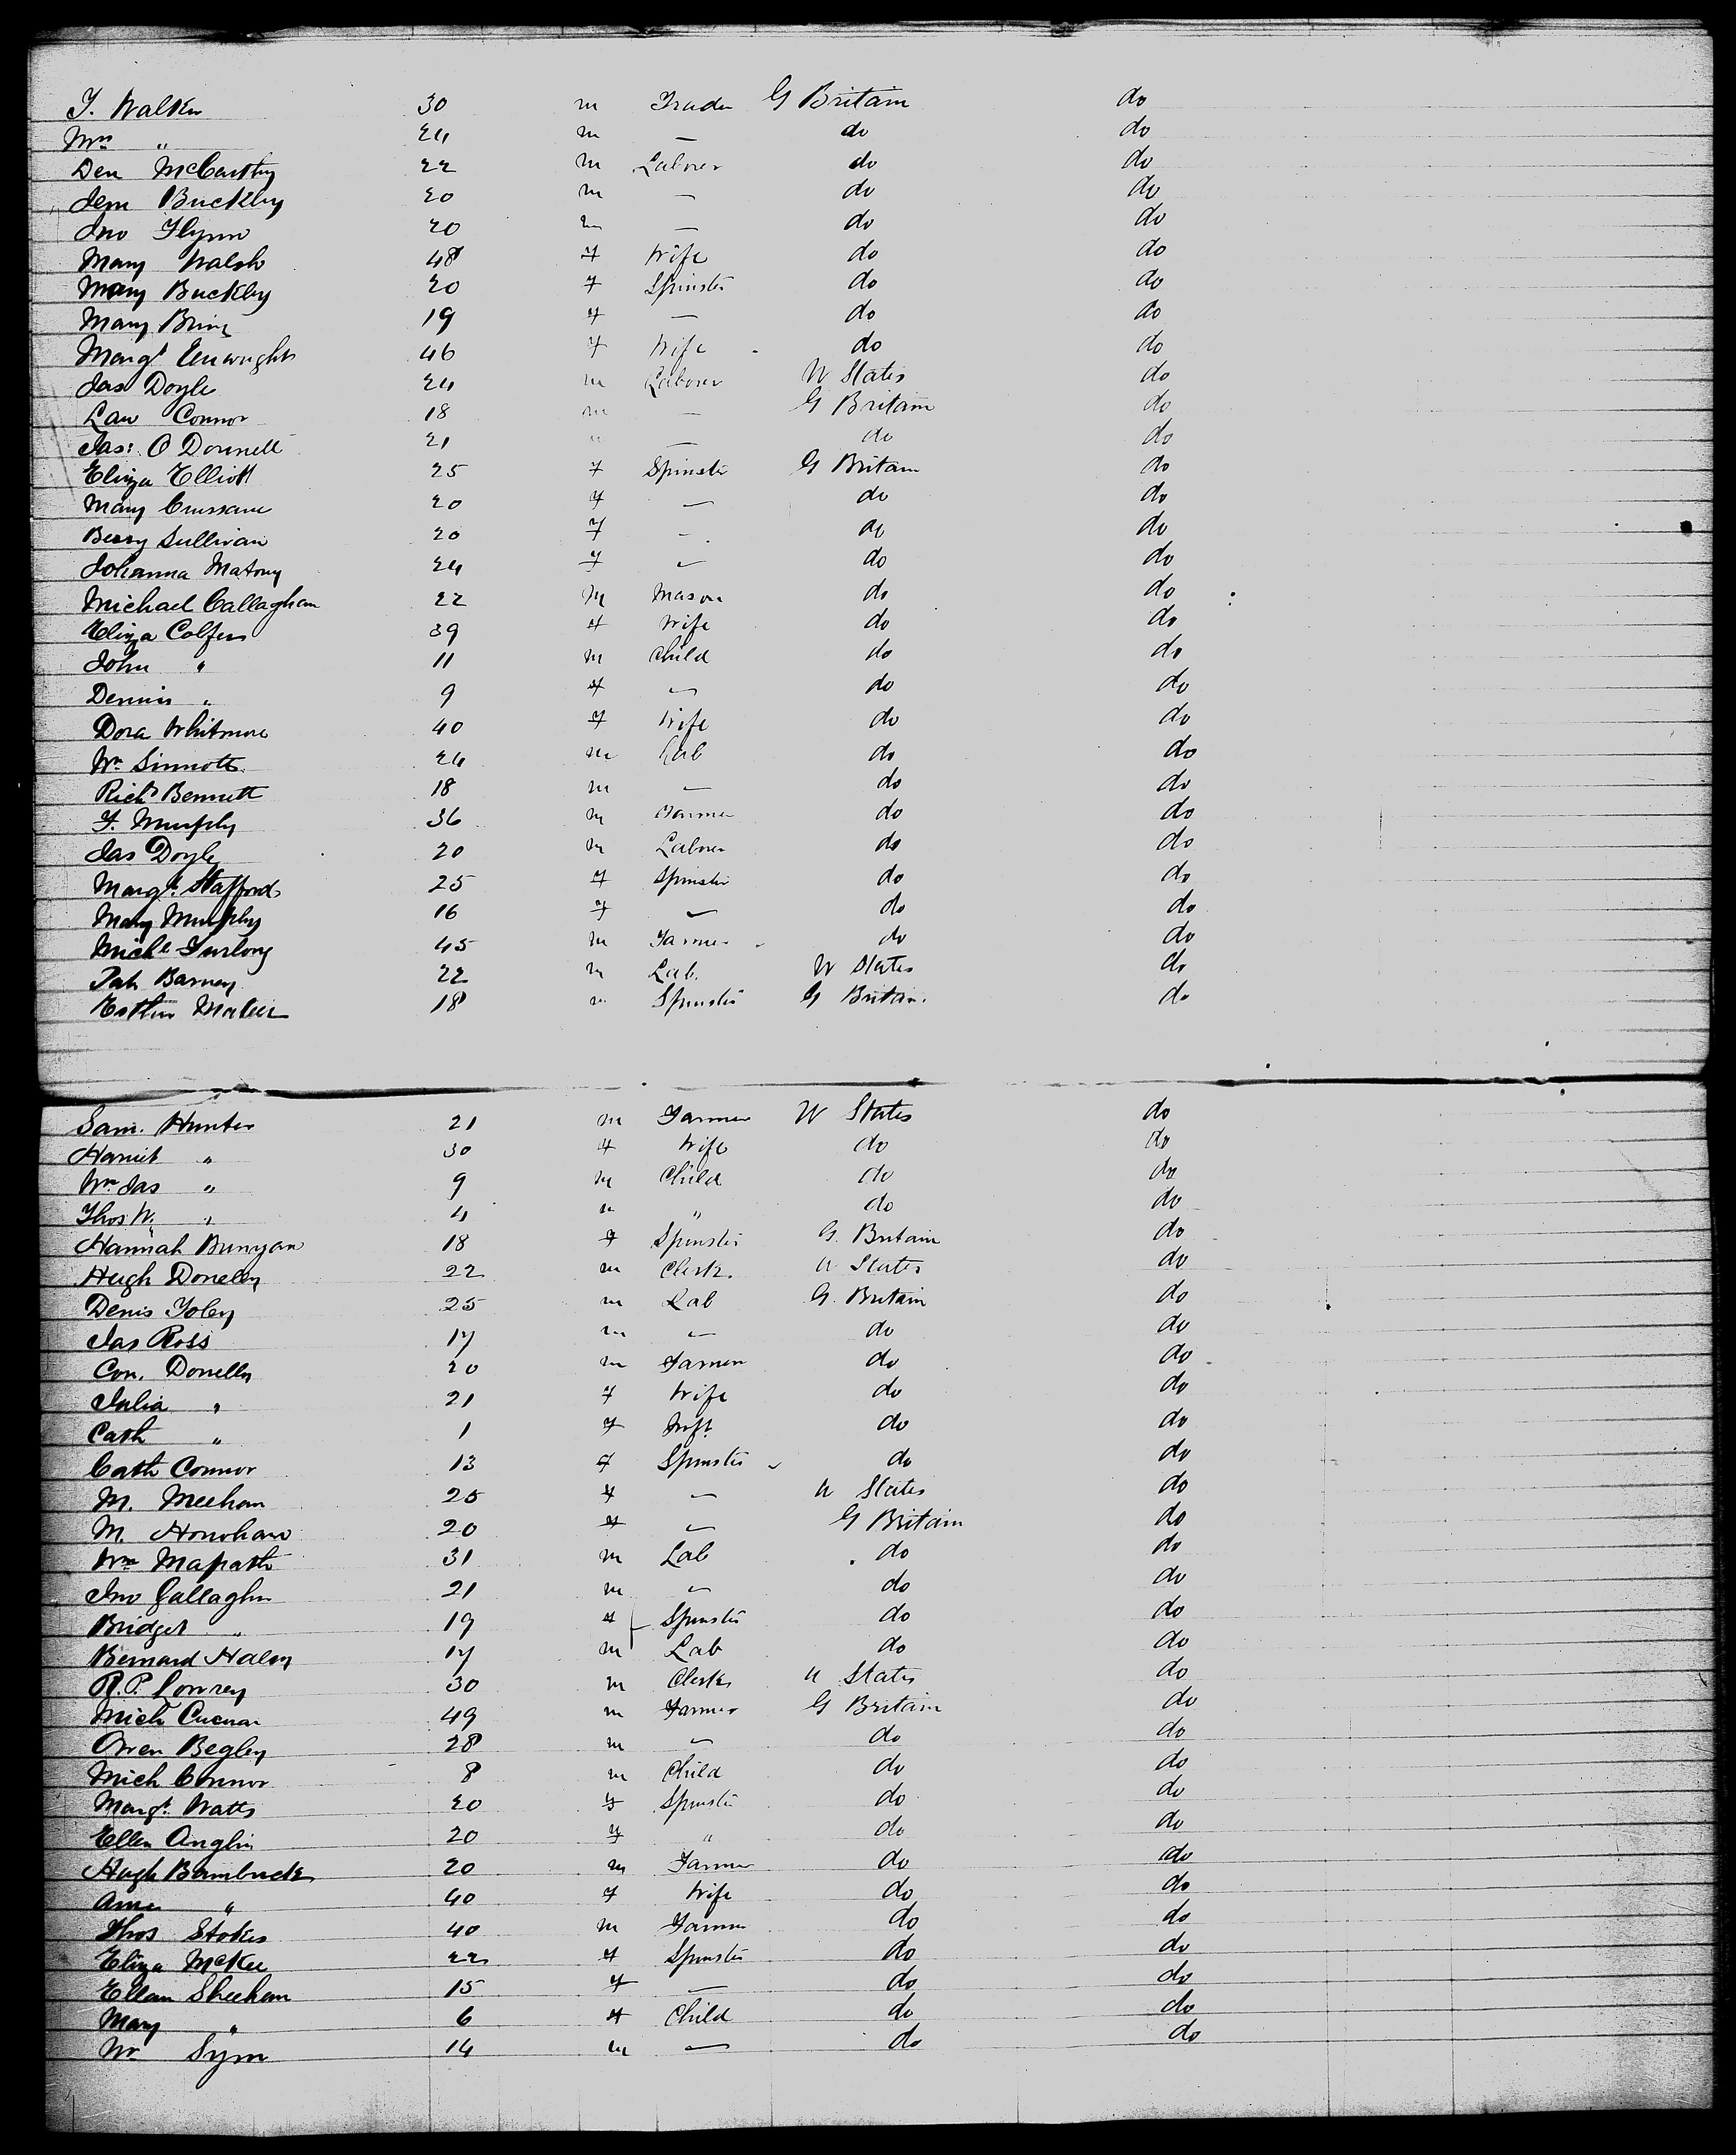 T. Walker 30 m Trader G Britain do
Mrs " 24 m — do do
Den McCarthy 22 m Laborer do do
Jem Buckley 20 m — do do
Jno Flynn 20 m — do do
Mary Walsh 48 f Wife do do
Mary Buckley 20 f Spinster do do
Mary 19 f — do do
Margt 46 f Wife do do
Jas Doyle 24 m Laborer U States do
Law Connor 18 m — G Britain do
Jas: O Donnell 21 " — do do
Eliza Elliott 25 f Spinster G Britain do
Mary 20 f — do do
Sullivan 20 f — do do
Johanna 24 f — do do
Michael Callaghan 22 m Mason do do
Eliza Colfer 39 f Wife do do
John " 11 m Child do do
Dennis " 9 f — do do
Dora Whitmore 40 f Wife do do
Wm Sinnott 24 m Lab do do
Richd Bennett 18 m — do do
F. Murphy 36 m Farmer do do
Jas Doyle 20 m Laborer do do
Margt. Stafford 25 f Spinster do do
Mary Murphy 16 f — do do
Michl Furlong 45 m Farmer do do
Pat Barney 22 m Lab. U States do
18 m Spinster G Britain. do
Sam. Hunter 21 m Farmer U States do
Harriet " 30 f Wife do do
Wm Jas " 9 m Child do do
Thos W. " 4 m " do do
Hannah Bunyan 18 f Spinster G. Britain do
Hugh Doneley 22 m Clerk. U States do
Denis Foley 25 m Lab G. Britain do
Jas Ross 17 m — do do
Con. Donelly 20 m Farmer do do
Julia " 21 f Wife do do
Cath " 1 f Inft do do
Cath Connor 13 f Spinster do do
M. Meehan 25 f — U States do
M. Honohan 20 f — G Britain do
Wm 31 m Lab do do
Jno Gallagher 21 m — do do
Bridget " 19 f Spinster do do
Bernard Haley 17 m Lab do do
R. P. Lowrey 30 m Clerk U States do
Mich 49 m Farmer G Britain do
Owen Begley 28 m — do do
Mich Connor 8 m Child do do
Margt. Watts 20 f Spinster do do
Ellen Anglin 20 f " do do
Hugh Bambrick 20 m Farmer do do
Anne " 40 f Wife do do
Thos Stokes 40 m Farmer do do
Eliza McKee 22 f Spinster do do
Ellan Sheehan 15 f — do do
Mary " 6 f Child do do
Wm Sym 14 m — do do